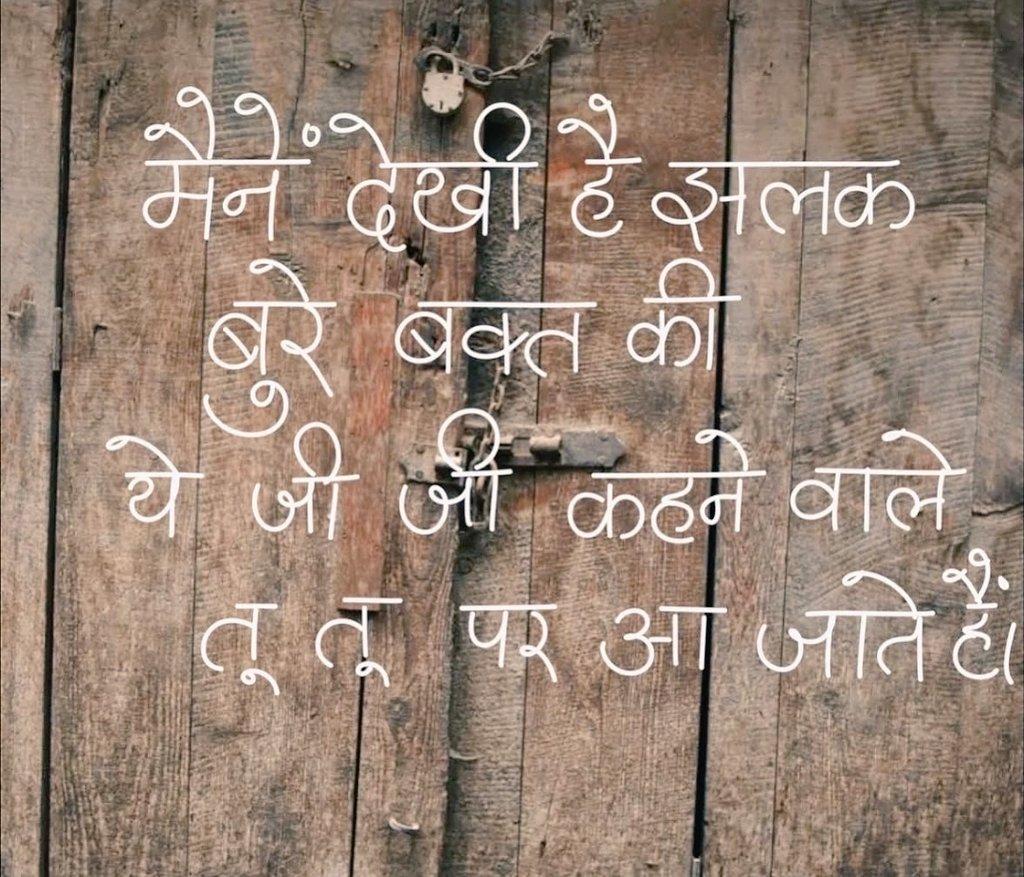 मैनें देखी है झलक
बुरे बक्त की
ये जी जी कहने वाले
तू तू पर आ जाते हैं।